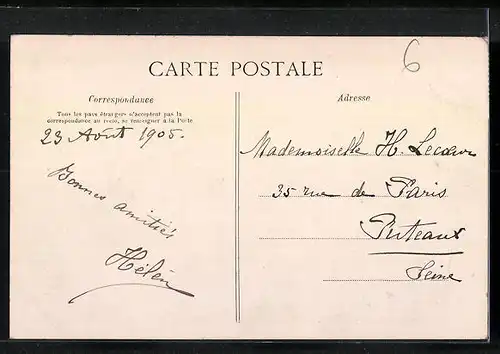 6
CARTE POSTALE
Correspondance
Tous les pays étrangers n'acceptent pas la
correspondance au recto, se renseigner à la Poste
23 Août 1905.
Bonnes amitiés
Hélèn
Adresse
Mademoiselle H. Lecœur
35 rue de Paris
Puteaux
Seine